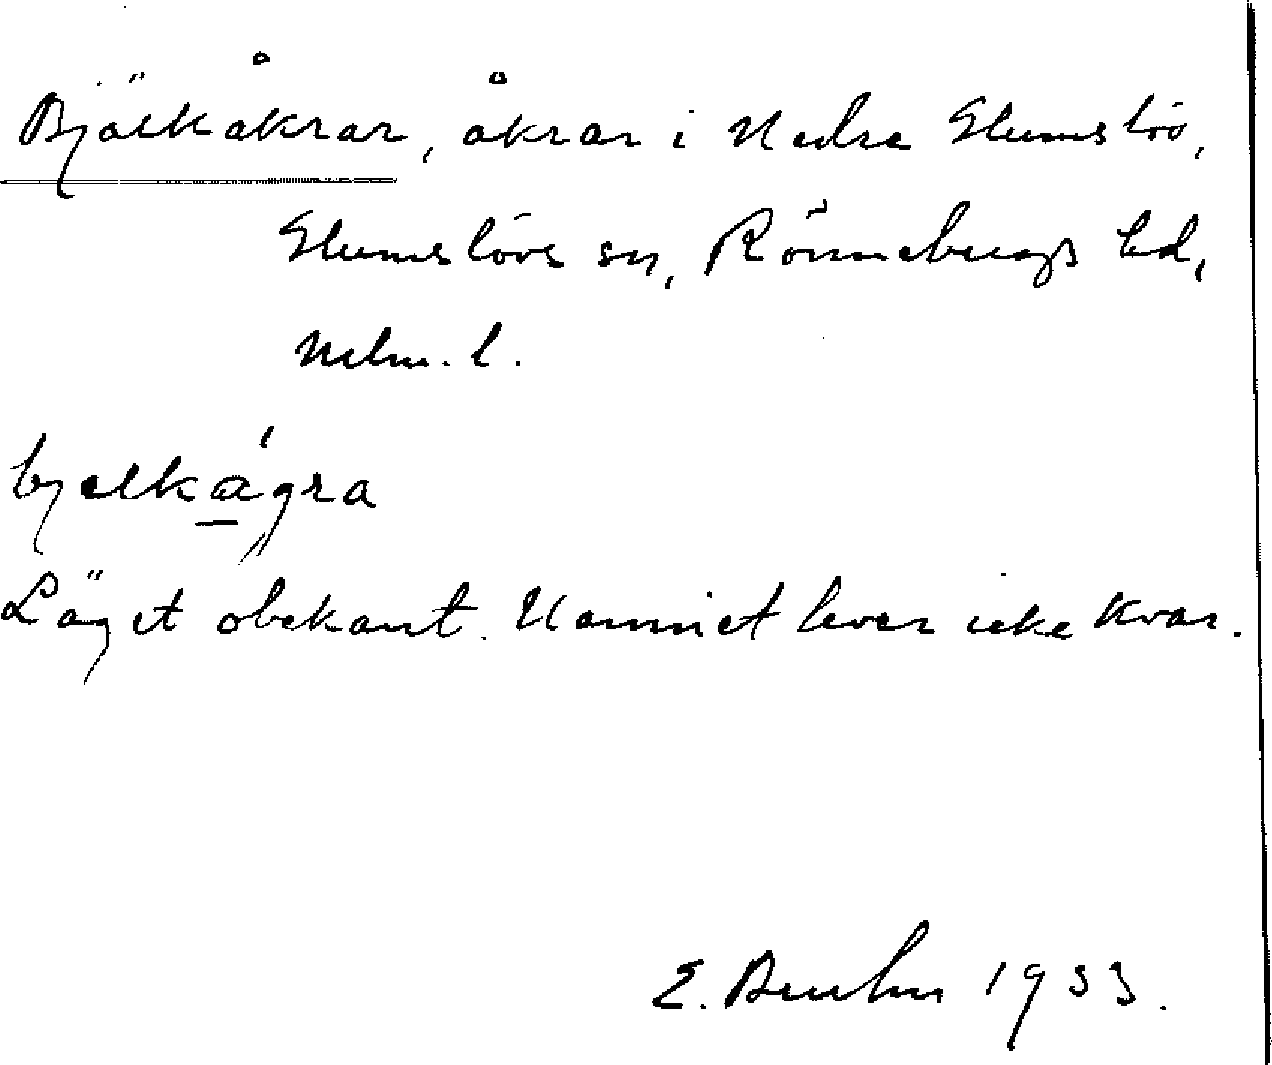 Bjälkåkrar, åkrar i Nedre Glumslöv,
Glumslövs sn, Rönnebergs hd,
Malm. l.
bjelkagra
Läget obekant. Namnet lever icke kvar.
E. Bruhn 1933.